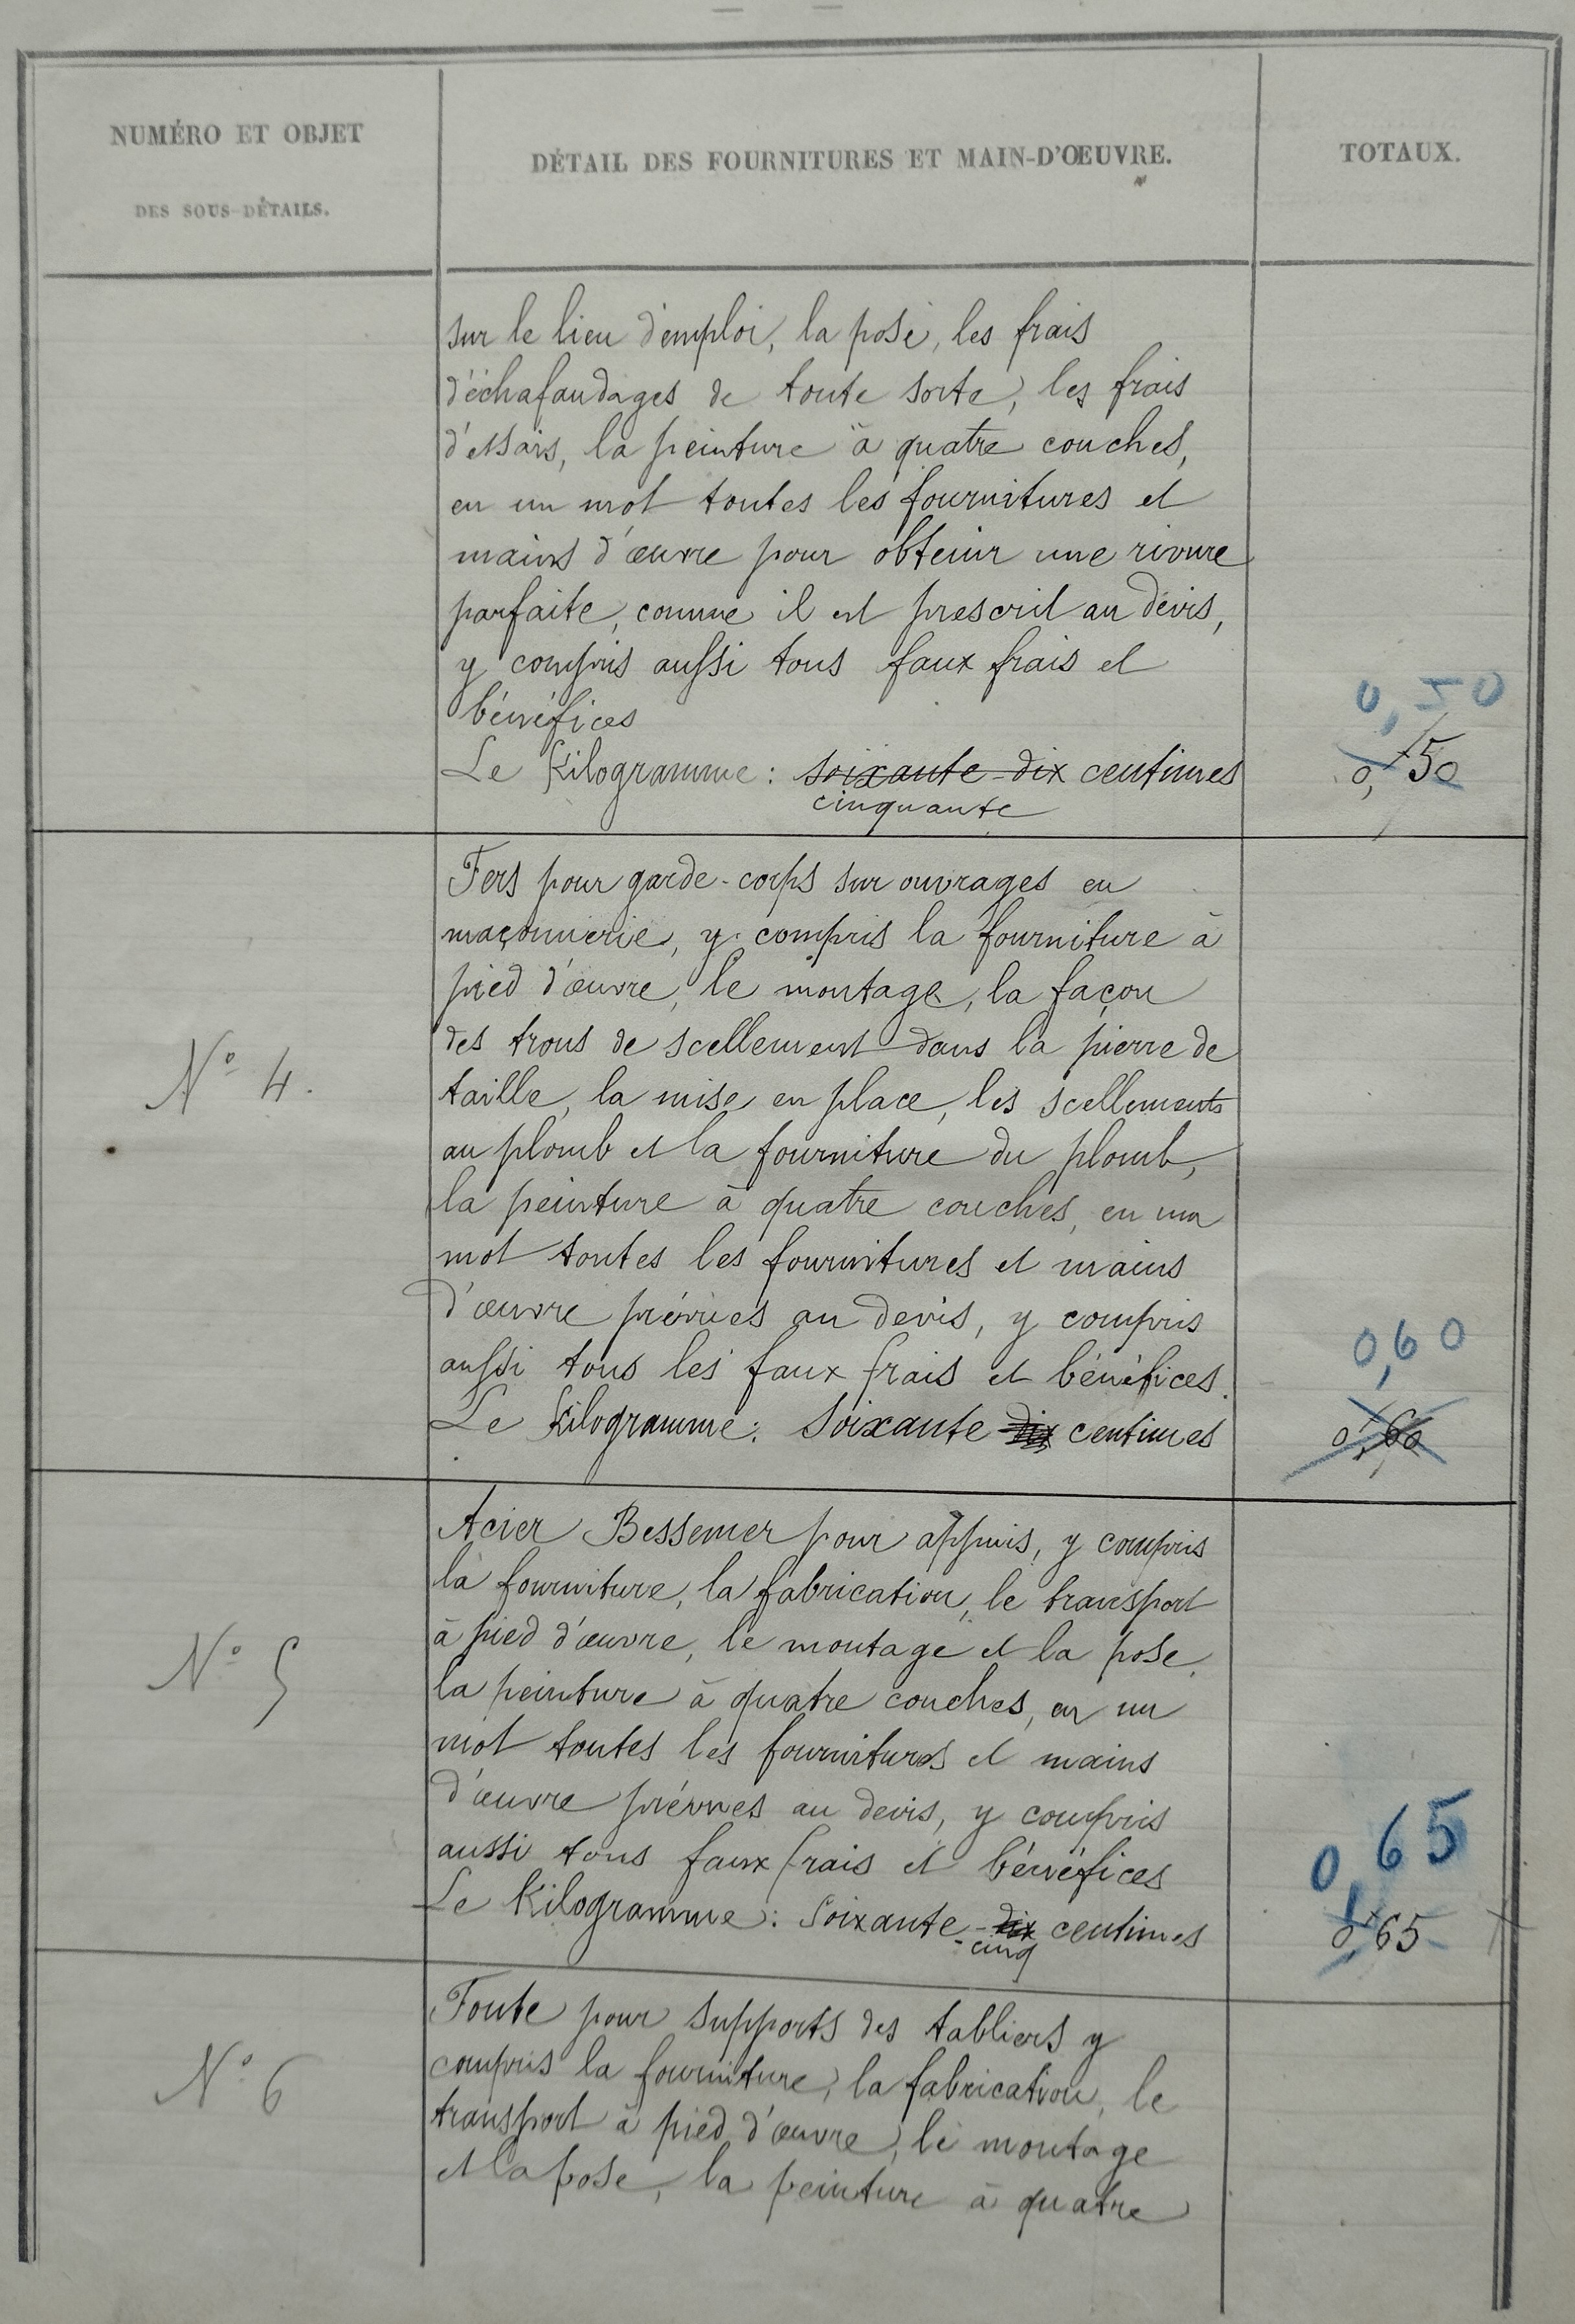 NUMÉRO ET OBJET
DES SOUS-DÉTAILS.
DÉTAIL DES FOURNITURES ET MAIN-D'ŒUVRE.
TOTAUX.
sur le lieu d'emploi, la pose, les frais
d'échafaudages de toute sorte, les frais
d'essais, la peinture à quatre couches,
en un mot toutes les fournitures et
mains d'œuvre pour obtenir une rivure
parfaite, comme il est prescrit au devis,
y compris aussi tous faux frais et
bénéfices
0,50
Le Kilogramme : soixante-dix centimes
0,50
cinquante
Fers pour garde-corps sur ouvrages en
maçonnerie, y compris la fourniture à
pied d'œuvre, le montage, la façon
des trous de scellement dans la pierre de
N° 4.
taille, la mise en place, les scellements
au plomb et la fourniture du plomb,
la peinture à quatre couches, en un
mot toutes les fournitures et mains
d'œuvre prévues au devis, y compris
aussi tous les faux frais et bénéfices.
0,60
Le Kilogramme : Soixante dix centimes
0,60
Acier Bessemer pour appuis, y compris
la fourniture, la fabrication, le transport
à pied d'œuvre, le montage et la pose,
N° 5
la peinture à quatre couches, en un
mot toutes les fournitures et mains
d'œuvre prévues au devis, y compris
aussi tous faux frais et bénéfices
0,65
Le Kilogramme : Soixante-dix centimes
0,65
-cinq
Fonte pour supports des tabliers y
compris la fourniture, la fabrication, le
N° 6
transport à pied d'œuvre, le montage
et la pose, la peinture à quatre